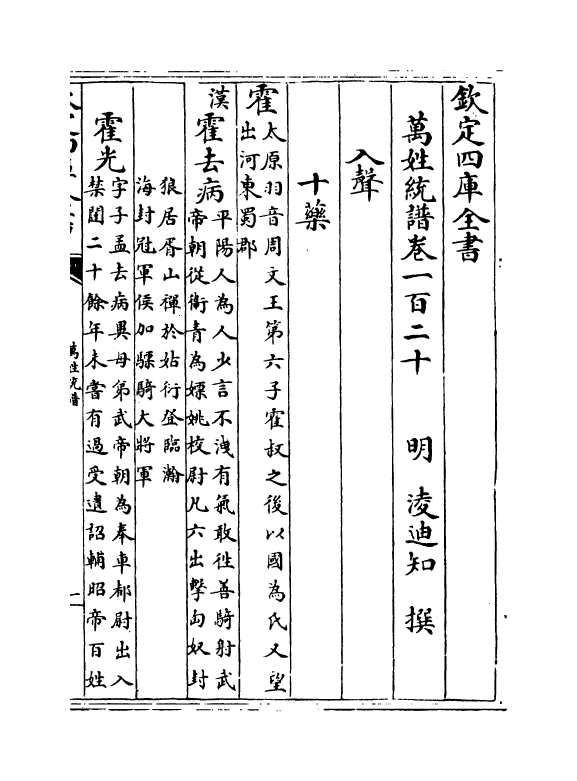 欽定四庫全書
萬姓統譜卷一百二十　明　凌迪知　撰
入聲
十藥
霍
太原羽音周文王第六子霍叔之後以國為氏又望
出河東蜀郡
漢
霍去病
平陽人為人少言不洩有氣敢徃善騎射武
帝朝從衛青為嫖姚校尉凡六出擊匈奴封
狼居胥山禪於姑衍登臨瀚
海封冠軍侯加驃騎大將軍
霍光
字子孟去病異母弟武帝朝為奉車都尉出入
禁闥二十餘年未嘗有過受遺詔輔昭帝百姓
萬姓統譜
一